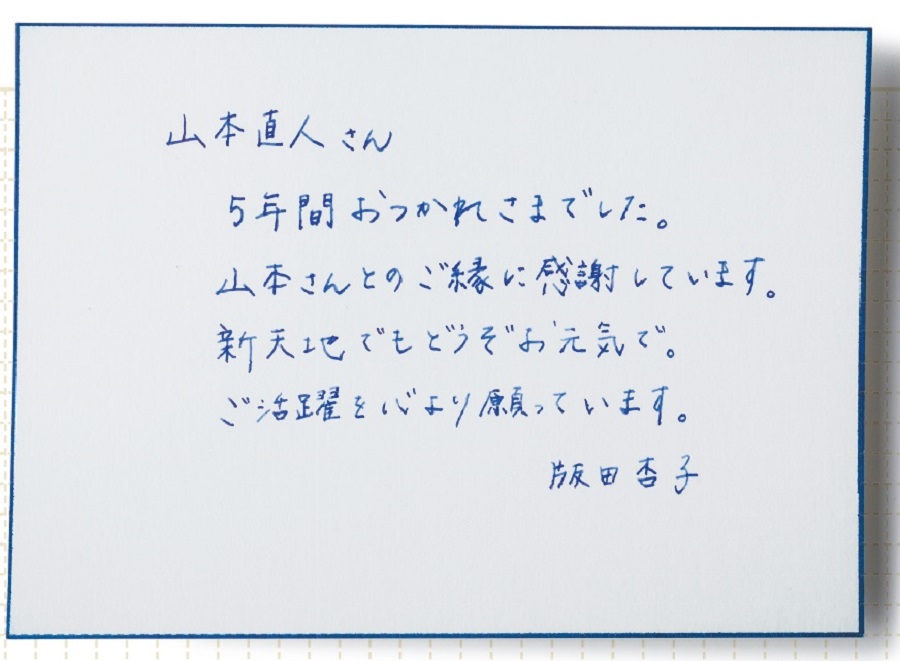 山本直人さん
5年間おつかれさまでした。
山本さんとのご縁に感謝しています。
新天地でもどうぞお元気で。
ご活躍を心より願っています。
版田杏子